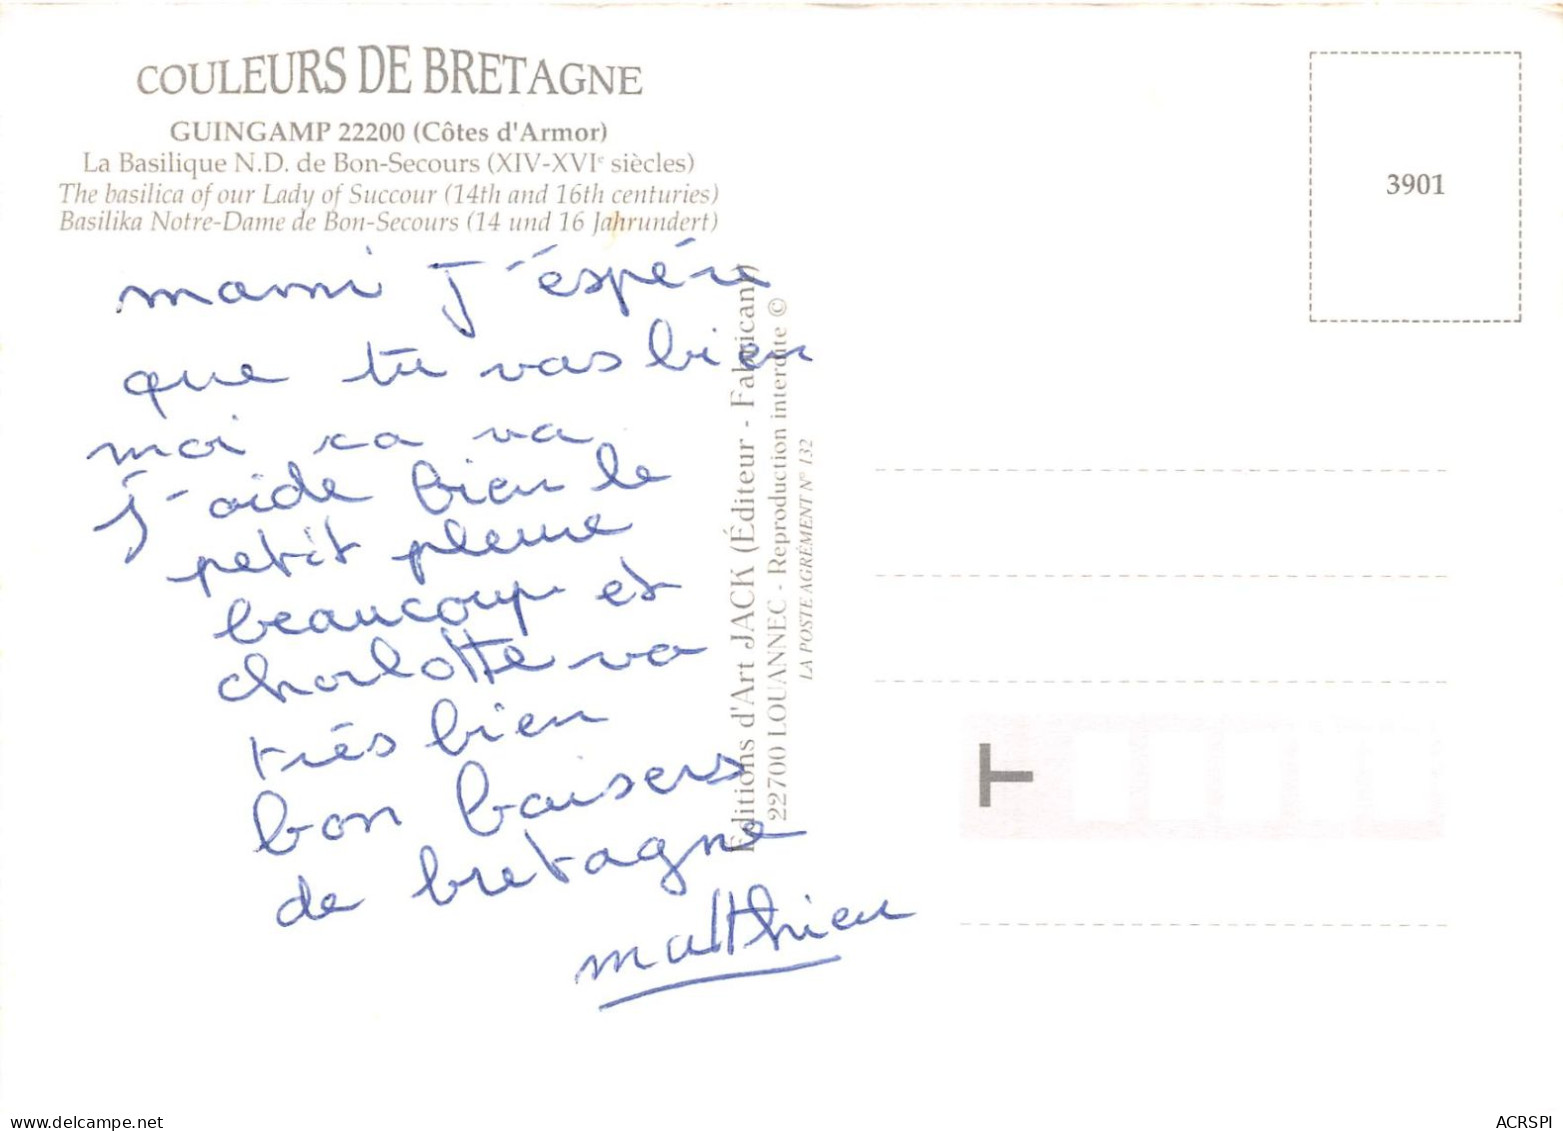 COULEURS DE BRETAGNE
GUINGAMP 22200 (Côtes d'Armor)
La Basilique N.D. de Bon-Secours (XIV-XVIe siècles)
The basilica of our Lady of Succour (14th and 16th centuries)
Basilika Notre-Dame de Bon-Secours (14 und 16 Jahrundert)
mami J'éspére
que tu vas bien
moi ca va
J'aide bien le
petit pleure
beaucoup et
charlotte va
trés bien
bon baisers
de bretagne
matthieu
Éditions d'Art JACK (Éditeur - Fabricant)
22700 LOUANNEC - Reproduction interdite ©
LA POSTE AGRÉMENT N° 132
3901
T
www.delcampe.net
ACRSPI